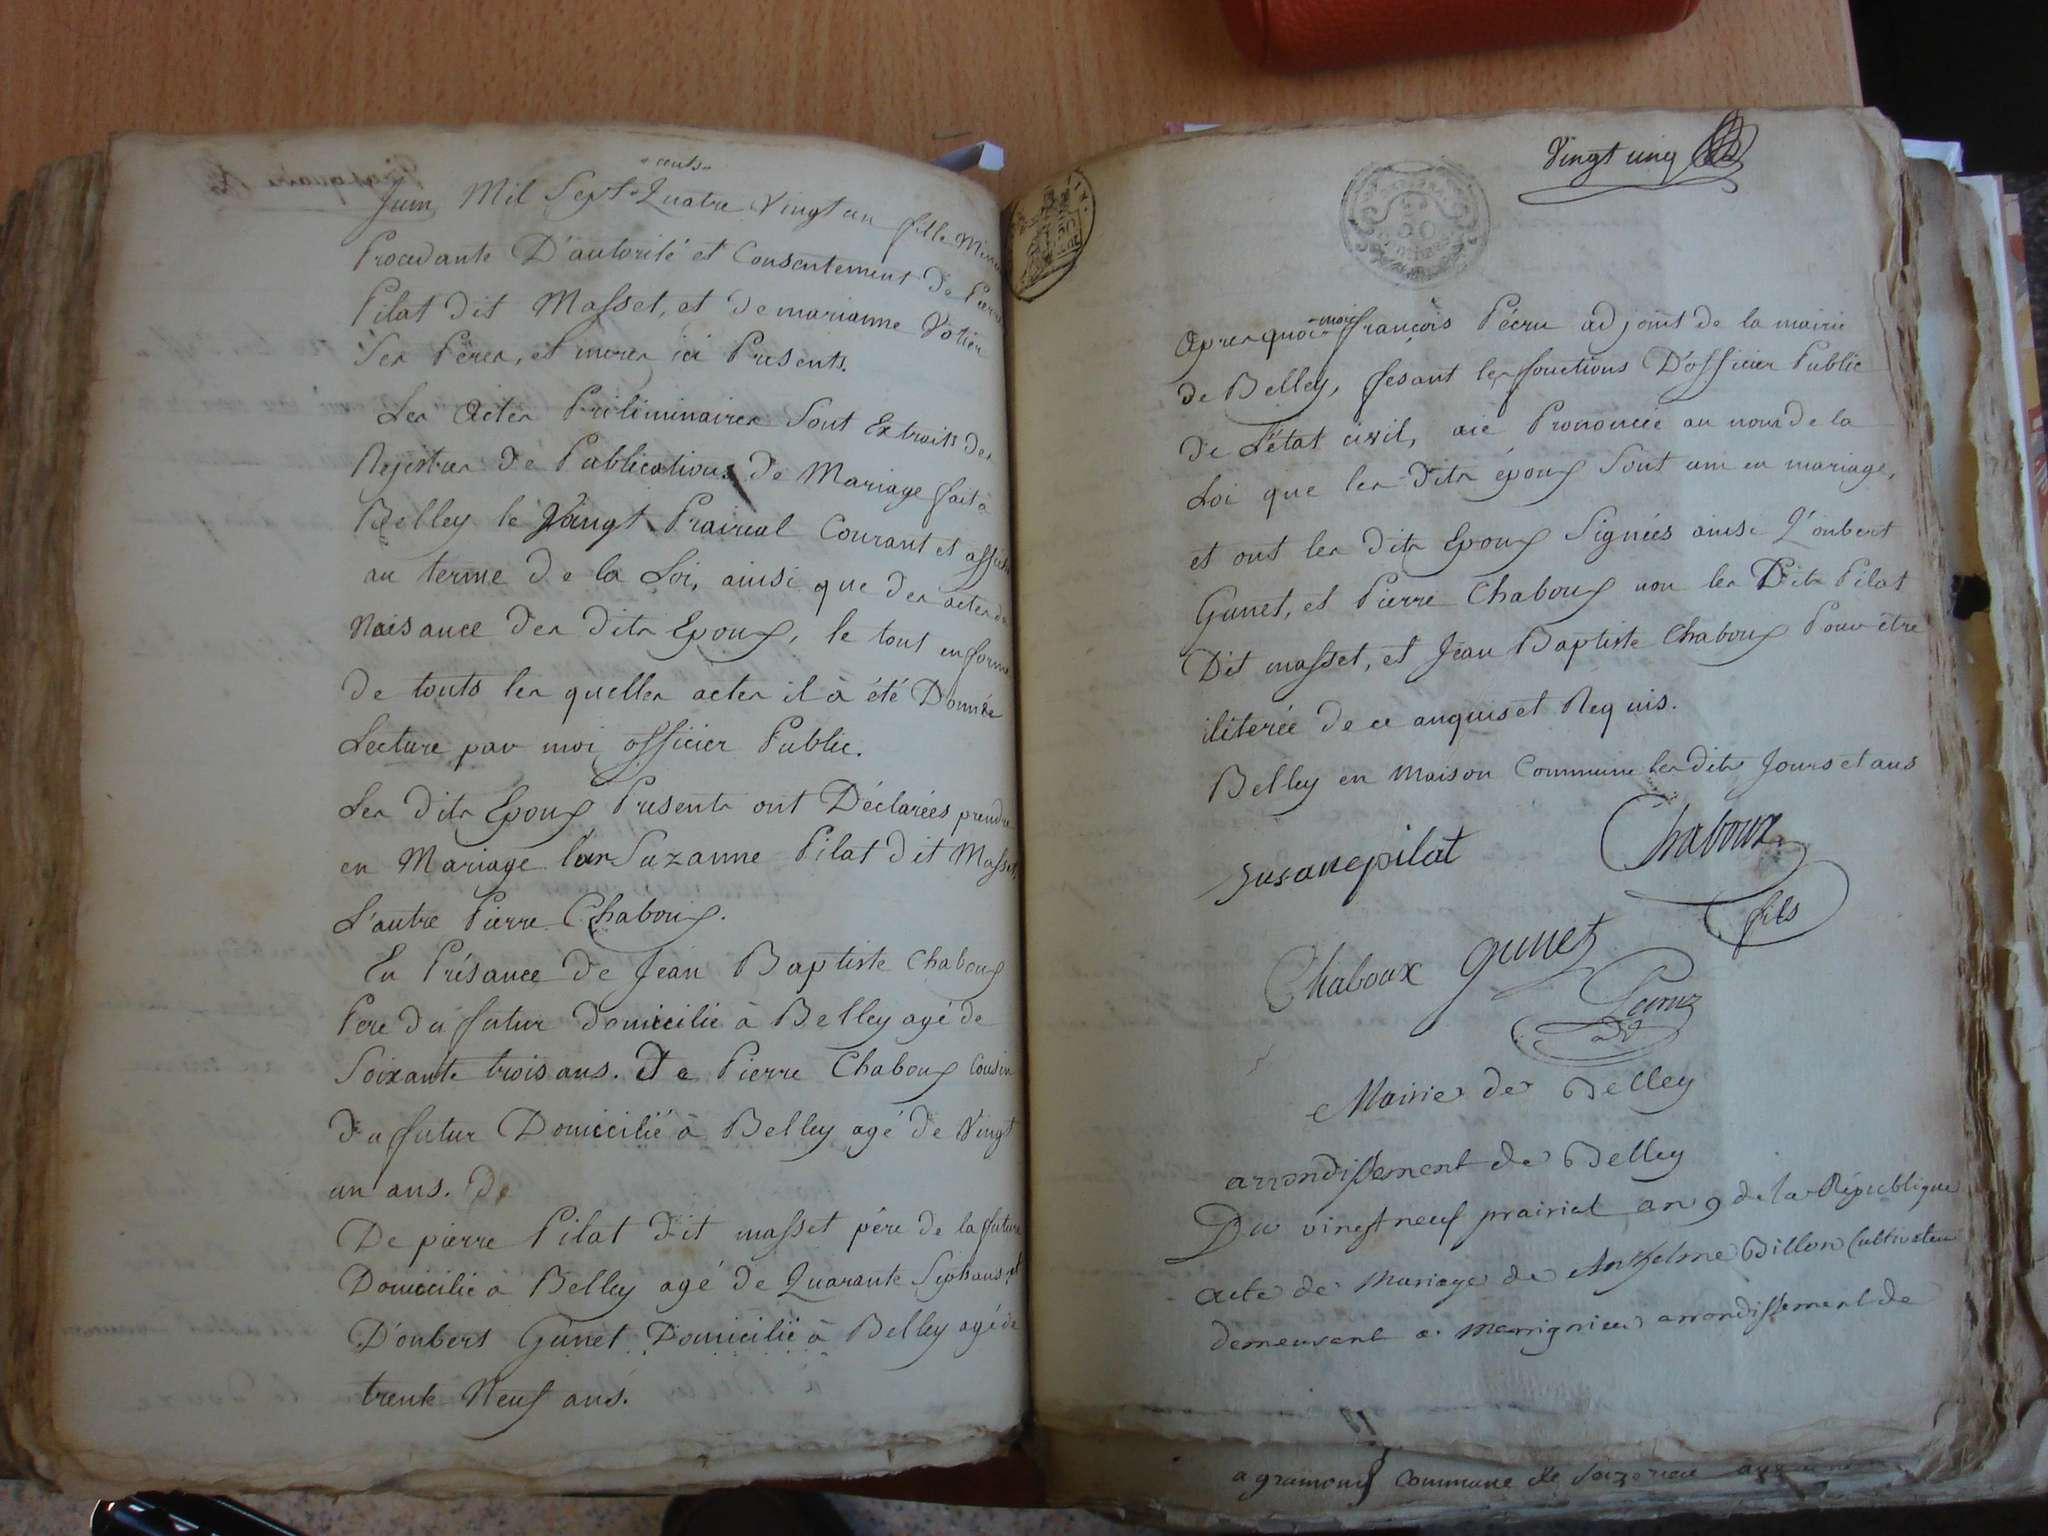 cents
Juin Mil Sept Quatre Vingt un fille Min
Procedante D'autorité et Consentement de Pierre
Pilat dit Masset, et de marianne Votier
Ses Peres, et meres ici Presents.
Les Actes Préliminaires Sont Extraits des
Registres de Publications de Mariage fait à
Belley le Vingt Prairial Courant et affiché
au terme de la Loi, ainsi que des actes de
Naisance des dits Epoux, le tout en forme
de touts les quelles actes il à été Donnée
Lecture par moi officier Public.
Les dits Epoux Presents ont Déclarées prendre
en Mariage l'un Suzanne Pilat dit Masset,
L'autre Pierre Chaboux.
En Présance de Jean Baptiste Chaboux
Pere du futur domicilié à Belley agé de
Soixante trois ans. de Pierre Chaboux Cousin
du futur Domicilié à Belley agé de Vingt
un ans. de
De pierre Pilat dit masset pére de la future
Domicilié à Belley agé de Quarante Sept ans et
D'oubert Gunet Domicilié à Belley agé de
trente Neuf ans.
Vingt cinq
Apres quoi moi françois Pécru adjoint de la mairie
de Belley, fesant les fonctions D'officier Public
de L'état civil, aié Prononcée au nom de la
Loi que les dits époux Sont uni en mariage,
et ont les dits Epoux Signées ainsi L'oubert
Gunet, et Pierre Chaboux non les Dits Pilat
Dit masset, et Jean Baptiste Chaboux Pour être
iliterée de ce anquis et Requis.
Belley en Maison Commune les dits Jours et ans
susanepilat Chaboux
fils
Chaboux gunet
Mairie de Belley
arrondissement de Belley
Du vingt neuf prairial an 9 de la République
acte de Mariage de Anthelme Billon Cultivateur
demeurant a Massignieu arrondissement de
a gramond Commune de